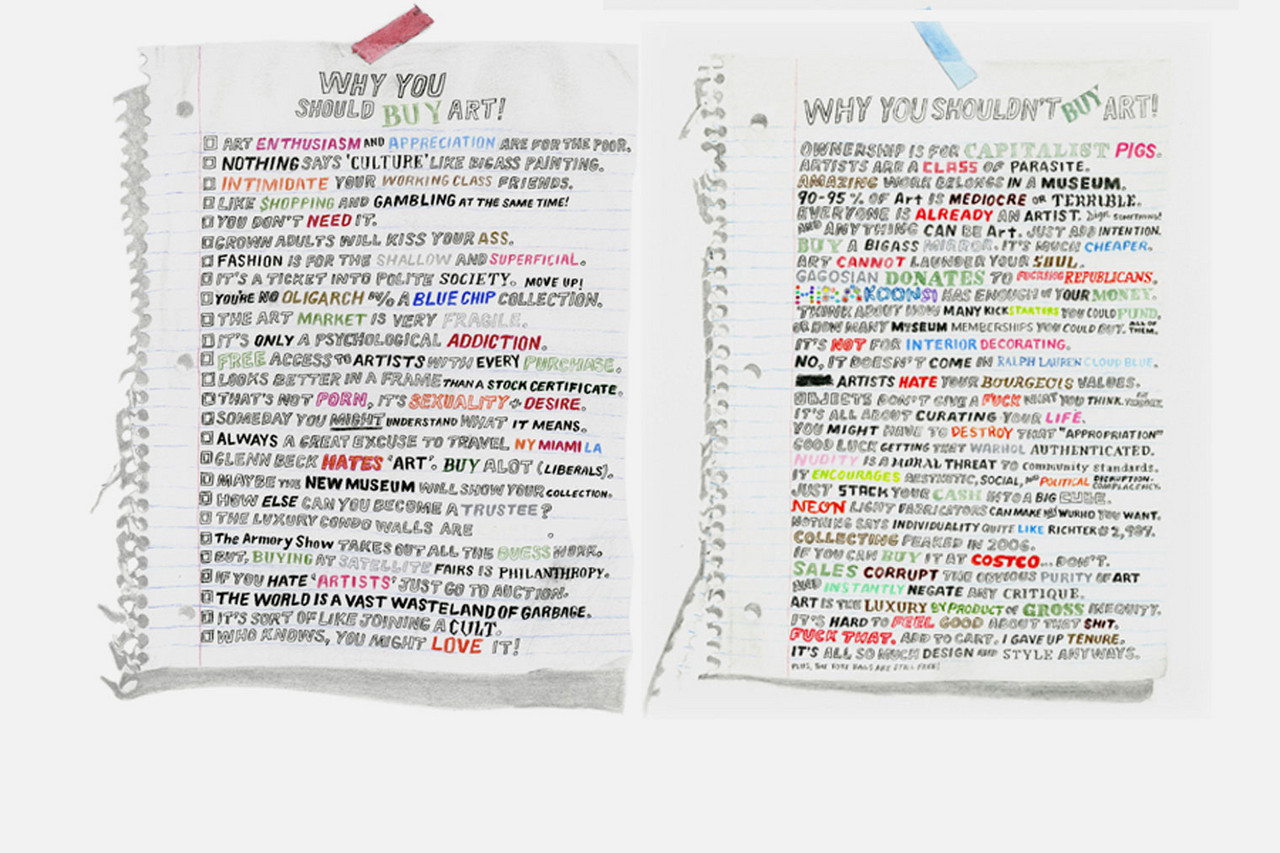 WHY YOU
SHOULD BUY ART!
ART ENTHUSIASM AND APPRECIATION ARE FOR THE POOR.
NOTHING SAYS 'CULTURE' LIKE BIGASS PAINTING.
INTIMIDATE YOUR WORKING CLASS FRIENDS.
LIKE $HOPPING AND GAMBLING AT THE SAME TIME!
YOU DON'T NEED IT.
GROWN ADULTS WILL KISS YOUR ASS.
FASHION IS FOR THE SHALLOW AND SUPERFICIAL.
IT'S A TICKET INTO POLITE SOCIETY. MOVE UP!
YOU'RE NO OLIGARCH W/O A BLUE CHIP COLLECTION.
THE ART MARKET IS VERY FRAGILE.
IT'S ONLY A PSYCHOLOGICAL ADDICTION.
FREE ACCESS TO ARTISTS WITH EVERY PURCHASE.
LOOKS BETTER IN A FRAME THAN A STOCK CERTIFICATE.
THAT'S NOT PORN, IT'S SEXUALITY + DESIRE.
SOMEDAY YOU MIGHT UNDERSTAND WHAT IT MEANS.
ALWAYS A GREAT EXCUSE TO TRAVEL NY MIAMI LA
GLENN BECK HATES 'ART'. BUY ALOT (LIBERALS).
MAYBE THE NEW MUSEUM WILL SHOW YOUR COLLECTION.
HOW ELSE CAN YOU BECOME A TRUSTEE?
THE LUXURY CONDO WALLS ARE
The Armory Show TAKES OUT ALL THE GUESS WORK.
BUT, BUYING AT SATELLITE FAIRS IS PHILANTHROPY.
IF YOU HATE 'ARTISTS' JUST GO TO AUCTION.
THE WORLD IS A VAST WASTELAND OF GARBAGE.
IT'S SORT OF LIKE JOINING A CULT.
WHO KNOWS, YOU MIGHT LOVE IT!
WHY YOU SHOULDN'T BUY ART!
OWNERSHIP IS FOR CAPITALIST PIGS.
ARTISTS ARE A CLASS OF PARASITE.
AMAZING WORK BELONGS IN A MUSEUM.
90-95% OF Art IS MEDIOCRE OR TERRIBLE.
EVERYONE IS ALREADY AN ARTIST. Sign something!
AND ANYTHING CAN BE Art. JUST ADD INTENTION.
BUY A BIGASS MIRROR. IT'S MUCH CHEAPER.
ART CANNOT LAUNDER YOUR SOUL.
GAGOSIAN DONATES TO FUCKING REPUBLICANS.
HAS ENOUGH OF YOUR MONEY.
THINK ABOUT HOW MANY KICKSTARTERS YOU COULD FUND,
OR HOW MANY MUSEUM MEMBERSHIPS YOU COULD BUY. ALL OF THEM.
IT'S NOT FOR INTERIOR DECORATING.
NO, IT DOESN'T COME IN RALPH LAUREN CLOUD BLUE.
ARTISTS HATE YOUR BOURGEOIS VALUES.
OBJECTS DON'T GIVE A FUCK WHAT YOU THINK.
IT'S ALL ABOUT CURATING YOUR LIFE.
YOU MIGHT HAVE TO DESTROY THAT "APPROPRIATION"
GOOD LUCK GETTING THAT WARHOL AUTHENTICATED.
NUDITY IS A MORAL THREAT TO community standards.
IT ENCOURAGES AESTHETIC, SOCIAL, AND POLITICAL DISRUPTION. COMPLACENCY.
JUST STACK YOUR CASH INTO A BIG CUBE.
NEON LIGHT FABRICATORS CAN MAKE ANY WORHD YOU WANT.
NOTHING SAYS INDIVIDUALITY QUITE LIKE RICHTER # 2,987.
COLLECTING PEAKED IN 2006.
IF YOU CAN BUY IT AT COSTCO... DON'T.
SALES CORRUPT THE OBVIOUS PURITY OF ART
AND INSTANTLY NEGATE ANY CRITIQUE.
ART IS THE LUXURY BYPRODUCT OF GROSS INEQUITY.
IT'S HARD TO FEEL GOOD ABOUT THAT $HIT.
FUCK THAT. ADD TO CART. I GAVE UP TENURE.
IT'S ALL SO MUCH DESIGN AND STYLE ANYWAYS.
PLUS, THE TOTE BAGS ARE STILL FREE!